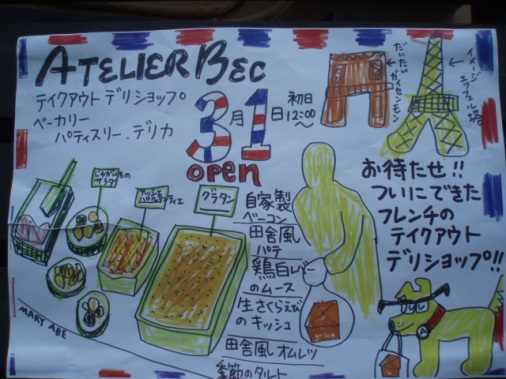 ATELIER BEC
テイクアウト デリショップ
ベーカリー
パティスリー.デリカ
3月1日 初日
12:00〜
open
だいたい
ガイセンモン
イメージ
エッフェル塔
お待たせ!!
ついにできた
フレンチの
テイクアウト
デリショップ!!
じゃがいもの
サラダ
グラタン
自家製
ベーコン
田舎風
パテ
鶏白レバー
のムース
生さくらえび
のキッシュ
田舎風オムレツ
季節のタルト
MARY ABE
A